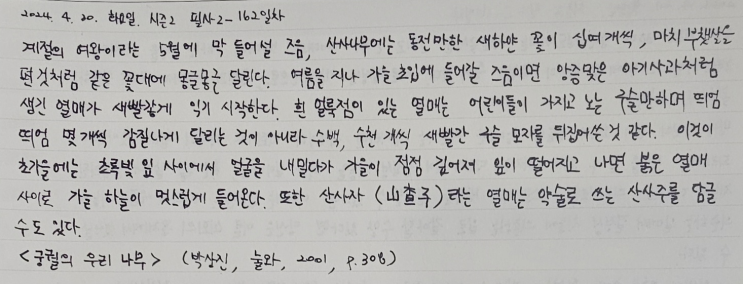 2024. 4. 30. 화요일. 시즌2 필사2-162일차
계절의 여왕이라는 5월에 막 들어설 즈음, 산사나무에는 동전만한 새하얀 꽃이 십여개씩, 마치 부챗살을
편것처럼 같은 꽃대에 몽글몽글 달린다. 여름을 지나 가을 초입에 들어갈 즈음이면 앙증맞은 아기사과처럼
생긴 열매가 새빨갛게 익기 시작한다. 흰 얼룩점이 있는 열매는 어린이들이 가지고 노는 구슬만하며 띄엄
띄엄 몇개씩 감질나게 달리는 것이 아니라 수백, 수천 개씩 새빨간 구슬 모자를 뒤집어쓴 것 같다. 이것이
초가을에는 초록빛 잎 사이에서 얼굴을 내밀다가 가을이 점점 깊어져 잎이 떨어지고 나면 붉은 열매
사이로 가을 하늘이 멋스럽게 들어온다. 또한 산사자 (山査子) 라는 열매는 약술로 쓰는 산사주를 담글
수도 있다.
<궁궐의 우리 나무> (박상진, 눌와, 2001, p.308)